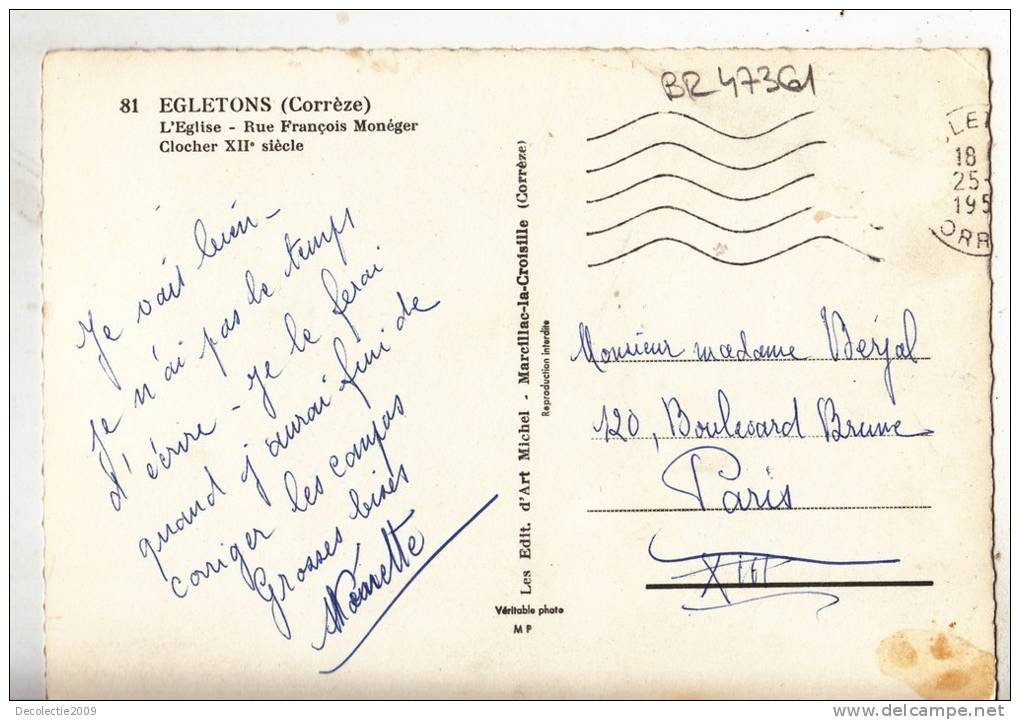 BR 47361
81 EGLETONS (Corrèze)
L'Eglise - Rue François Monéger
Clocher XIIe siècle
Je vais bien -
je n'ai pas le temps
d'écrire - je le ferai
quand j'aurai fini de
corriger les compos
Grosses bises
Les Edit. d'Art Michel - Marcillac-la-Croisille (Corrèze)
Reproduction interdite
Véritable photo
MP
LE
18
25-
195
ORR
Monsieur madame Berjal
120, Boulevard Brune
Paris
Decolectie2009
www.delcampe.net